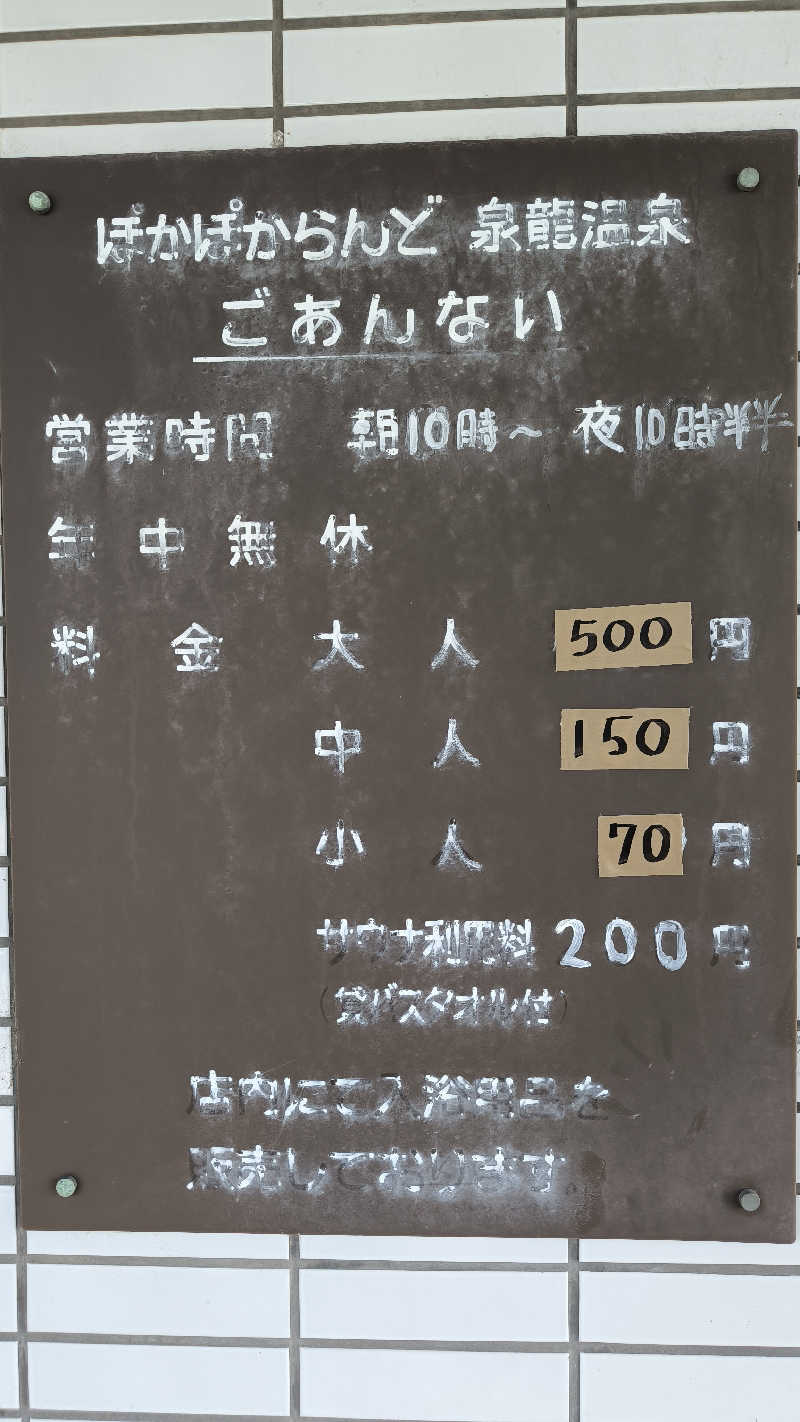 ぽかぽからんど 泉龍温泉
ごあんない
営業時間 朝10時～夜10時半
年中無休
料金 大人 500円
中人 150円
小人 70円
サウナ利用料 200円
(貸バスタオル付)
店内にて入浴用品を
販売しております。